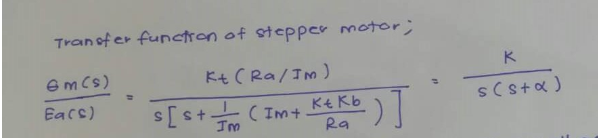 Transfer function of stepper motor;
θm(s) / Ea(s) = Kt (Ra/Im) / s[s + 1/Im (Im + KtKb/Ra)] = K / s(s+α)